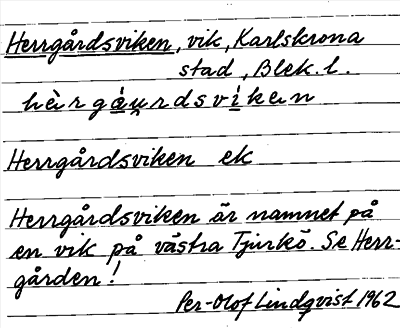 Herrgårdsviken, vik, Karlskrona
stad, Blek. l.
hèrgá̱u̯rdsví̱kan
Herrgårdsviken ek
Herrgårdsviken är namnet på
en vik på västra Tjurkö. Se Herr-
gården!
Per-Olof Lindqvist 1962